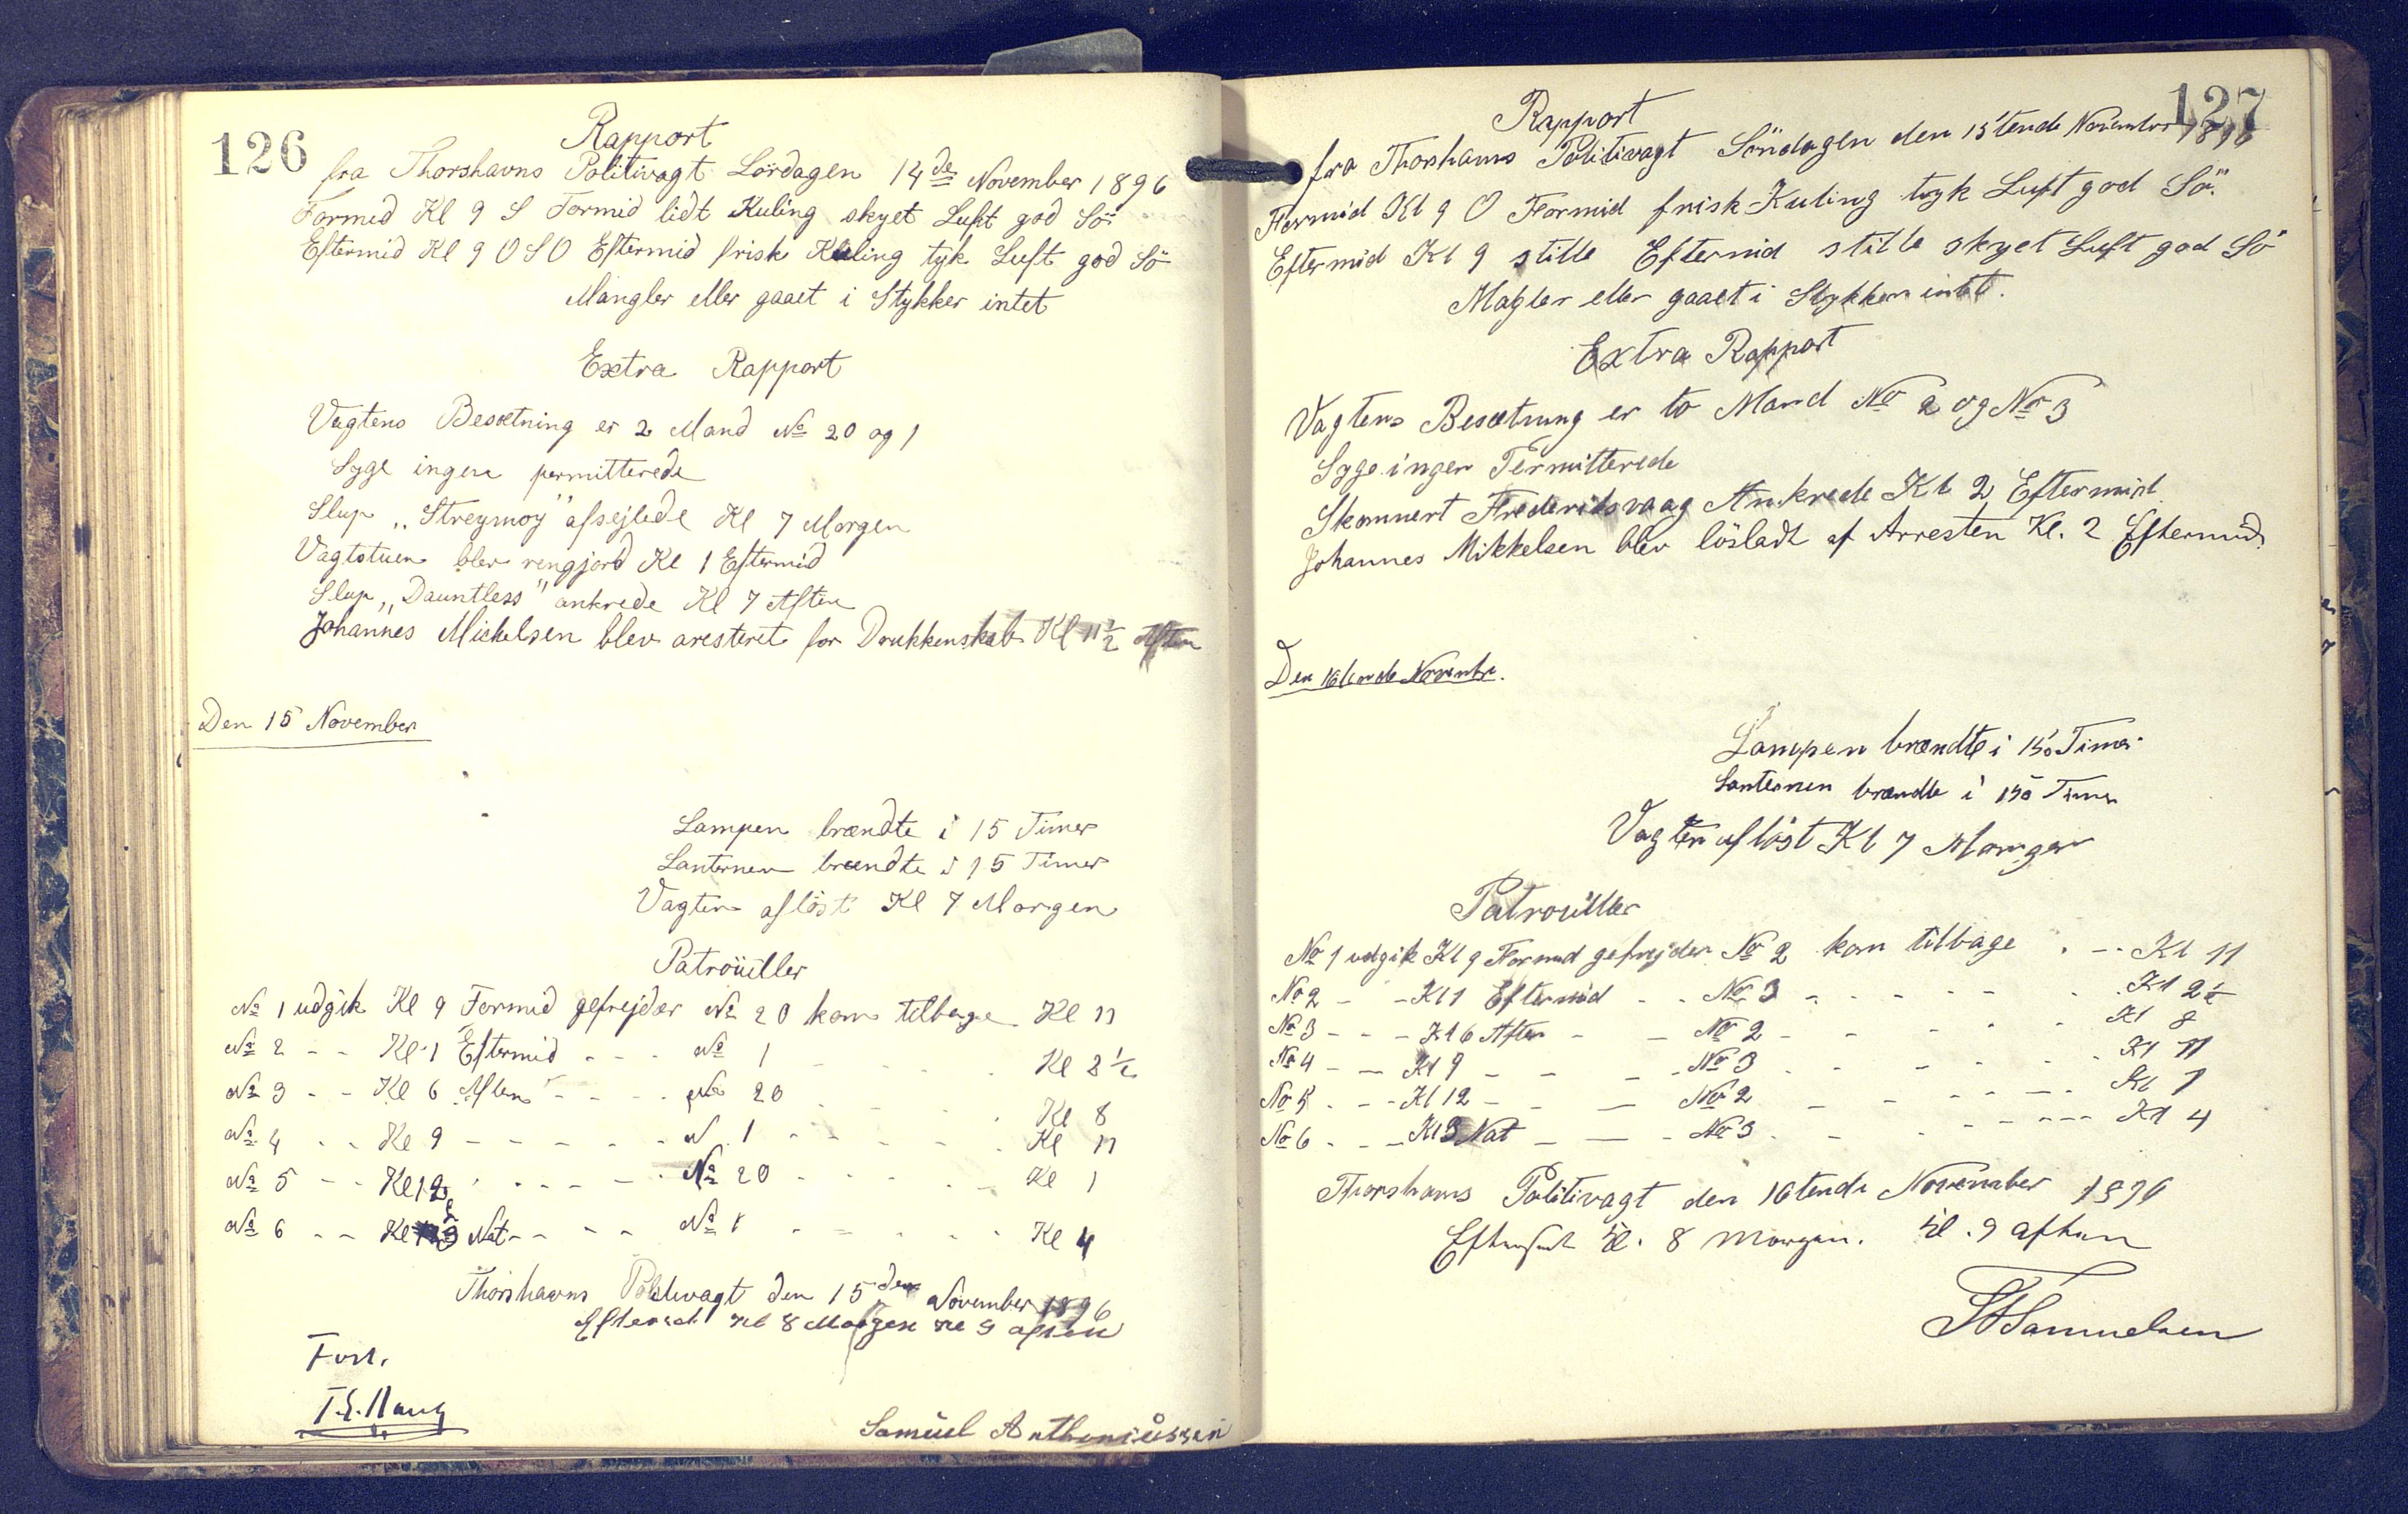 126
Rapport
fra Thorshavns Politivagt Lördagen 14de November 1896
Formid Kl 9 S Formid lidt Kuling skyet Luft god Sö
Eftermid Kl 9 OSO Eftermid frisk Kuling tyk Luft god Sö
Mangler eller gaaet i Stykker intet
Extra Rapport
Vagtens Besætning er 2 Mand No 20 og 1
Syge ingen permitterede
Slup "Streymoy" afsejlede Kl 7 Morgen
Vagtstuen blev rengjord Kl 1 Eftermid
Slup "Dauntless" ankrede Kl 7 Aften
Johannes Mickelsen blev aresteret for Drukkenskab Kl 11 1/2 Aften
Den 15 November
Lampen brændte i 15 Timer
Lanternen brændte i 15 Timer
Vagten aflöst Kl 7 Morgen
Patroüiller
No 1 udgik Kl 9 Formid gefrejder No 20 kom tilbage Kl 11
No 2 - - Kl 1 Eftermid - - - No 1 - - - Kl 2 1/2
No 3 - - Kl 6 Aften - - - No 20 - - - Kl 8
No 4 - - Kl 9 - - - - - N 1 - - - - Kl 11
No 5 - - Kl 12 - - - - - No 20 - - - - Kl 1
No 6 - - Kl 3 Nat - - - No 1 - - - - Kl 4
Thorshavns Politivagt den 15den November 1896
Efterset Kl 8 Morgen Kl 9 aften
Samüel Anthoniüssen
127
Rapport
fra Thorshavns Politivagt Söndagen den 15tende November 1896
Formid Kl 9 O Formid frisk Kuling tyk Luft god Sö.
Eftermid Kl 9 stille Eftermid stille skyet Luft god Sö
Magler eller gaaet i Stykker intet.
Extra Rapport
Vagtens Besætning er to Mand No 2 og No 3
Syge ingen Permitterede
Skonnert Frederiksvaag Ankrede Kl 2 Eftermid.
Johannes Mikkelsen blev lösladt af Arresten Kl. 2 Eftermid.
Den 16tende Novembr.
Lampen brændte i 15 Timer
Lanternen brændte i 15 Timer
Vagten aflöst Kl 7 Morgen
Patrouiller
No 1 udgik Kl 9 Formid gefrejder No 2 kom tilbage - - Kl 11
No 2 - - Kl 1 Eftermid - - No 3 - - - - Kl 2 1/2
No 3 - - - Kl 6 Aften - - No 2 - - - - Kl 8
No 4 - - Kl 9 - - - - No 3 - - - - Kl 11
No 5 - - - Kl 12 - - - No 2 - - - - Kl 1
No 6 - - - Kl 3 Nat - - - No 3 - - - - Kl 4
Thorshavns Politivagt den 16tende November 1896
Efterset kl. 8 Morgen. kl. 9 aften
Samuelsen